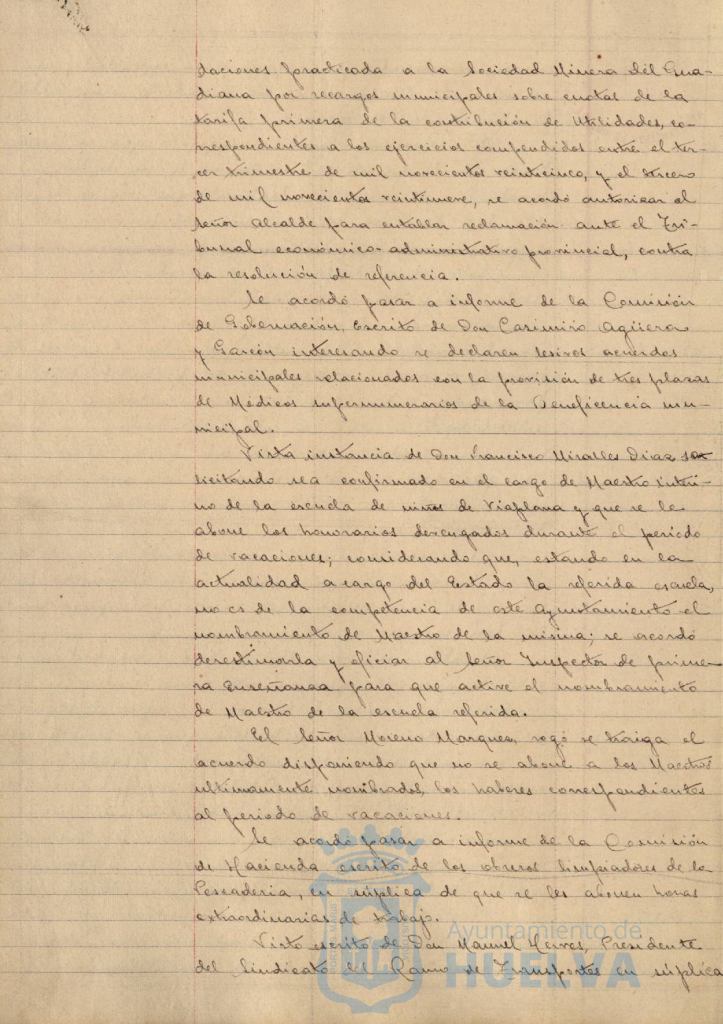 daciones practicada a la Sociedad Minera del Gua-
diana por recargos municipales sobre cuotas de la
tarifa primera de la contribución de Utilidades, co-
rrespondientes a los ejercicios comprendidos entre el ter-
cer trimestre de mil novecientos veinticinco, y el tercero
de mil novecientos veintinueve, se acordó autorizar al
Señor Alcalde para entablar reclamación ante el Tri-
bunal económico-administrativo provincial, contra
la resolución de referencia.
Se acordó pasar a informe de la Comisión
de Gobernación, escrito de Don Casimiro Agüera
y Garcón interesando se declaren lesivos acuerdos
municipales relacionados con la provisión de tres plazas
de Médicos supernumerarios de la Beneficencia mu-
nicipal.
Vista instancia de Don Francisco Miralles Diaz so-
licitando sea confirmado en el cargo de Maestro interi-
no de la escuela de niños de Viaplana y que se le
abone los honorarios devengados durante el periodo
de vacaciones; considerando que, estando en la
actualidad a cargo del Estado la referida escuela,
no es de la competencia de este Ayuntamiento el
nombramiento de Maestro de la misma; se acordó
desestimarla y oficiar al Señor Inspector de prime-
ra Enseñanza para que active el nombramiento
de Maestro de la escuela referida.
El Señor Moreno Marquez, rogó se traiga el
acuerdo disponiendo que no se abone a los Maestros
ultimamente nombrados, los haberes correspondientes
al periodo de vacaciones.
Se acordó pasar a informe de la Comisión
de Hacienda escrito de los obreros limpiadores de la
Pescaderia, en súplica de que se les abonen horas
extraordinarias de trabajo.
Ayuntamiento de
Visto escrito de Don Manuel Presidente
HUELVA
del Sindicato del Ramo de Transportes en súplica